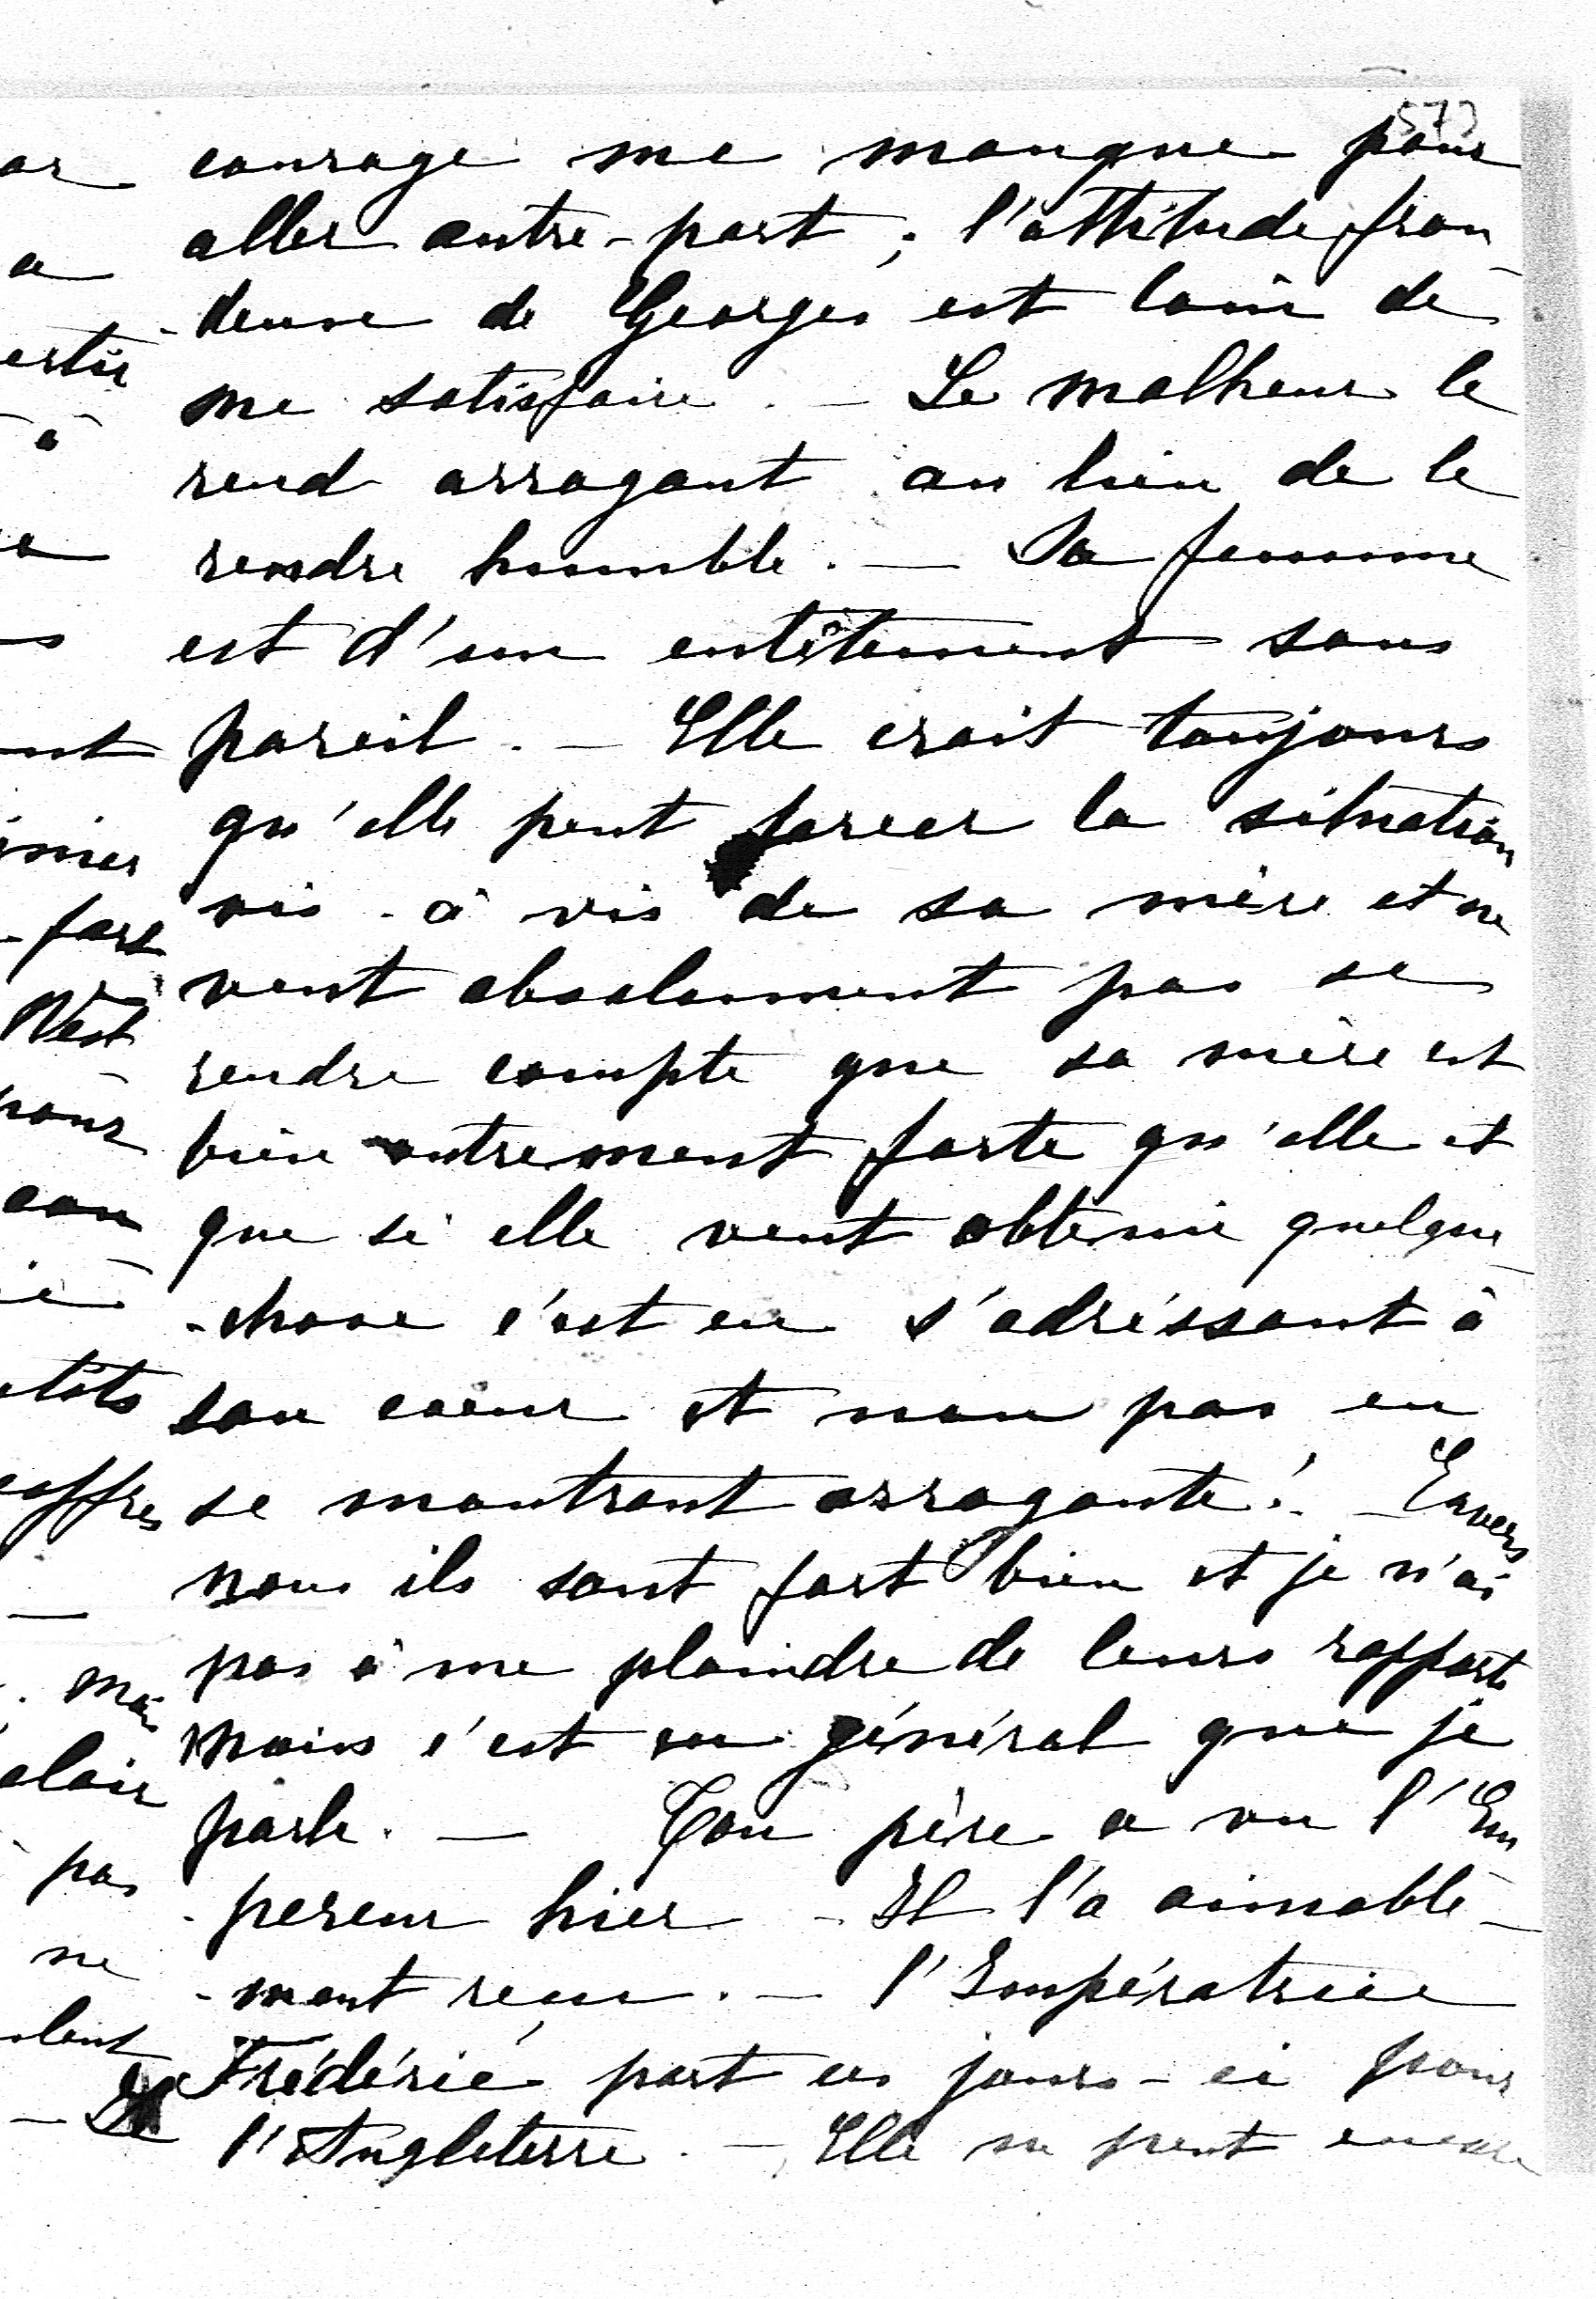 573
courage me manque pour
aller autre-part; l'attitude fron
-deuse de Georges est loin de
me satisfaire. — Le malheur le
rend arrogant au lieu de le
rendre humble. — Sa femme
est d'un entêtement sans
pareil. — Elle croit toujours
qu'elle peut forcer la situation
vis-à vis de sa mère et ne
veut absolument pas se
rendre compte que sa mère est
bien autrement forte qu'elle et
que si elle veut obtenir quelque
-chose c'est en s'adréssant à
son coeur et non pas en
se montrant arrogante! — Envers
nous ils sont fort bien et je n'ai
pas à me plaindre de leurs rapports
mais c'est en général que je
parle. — Ton père a vu l'Em
-pereur hier — Il l'a aimable-
-ment reçu. — l'Impératrice
Frédéric part ces jours-ci pour
l'Angleterre. — Elle ne peut encore